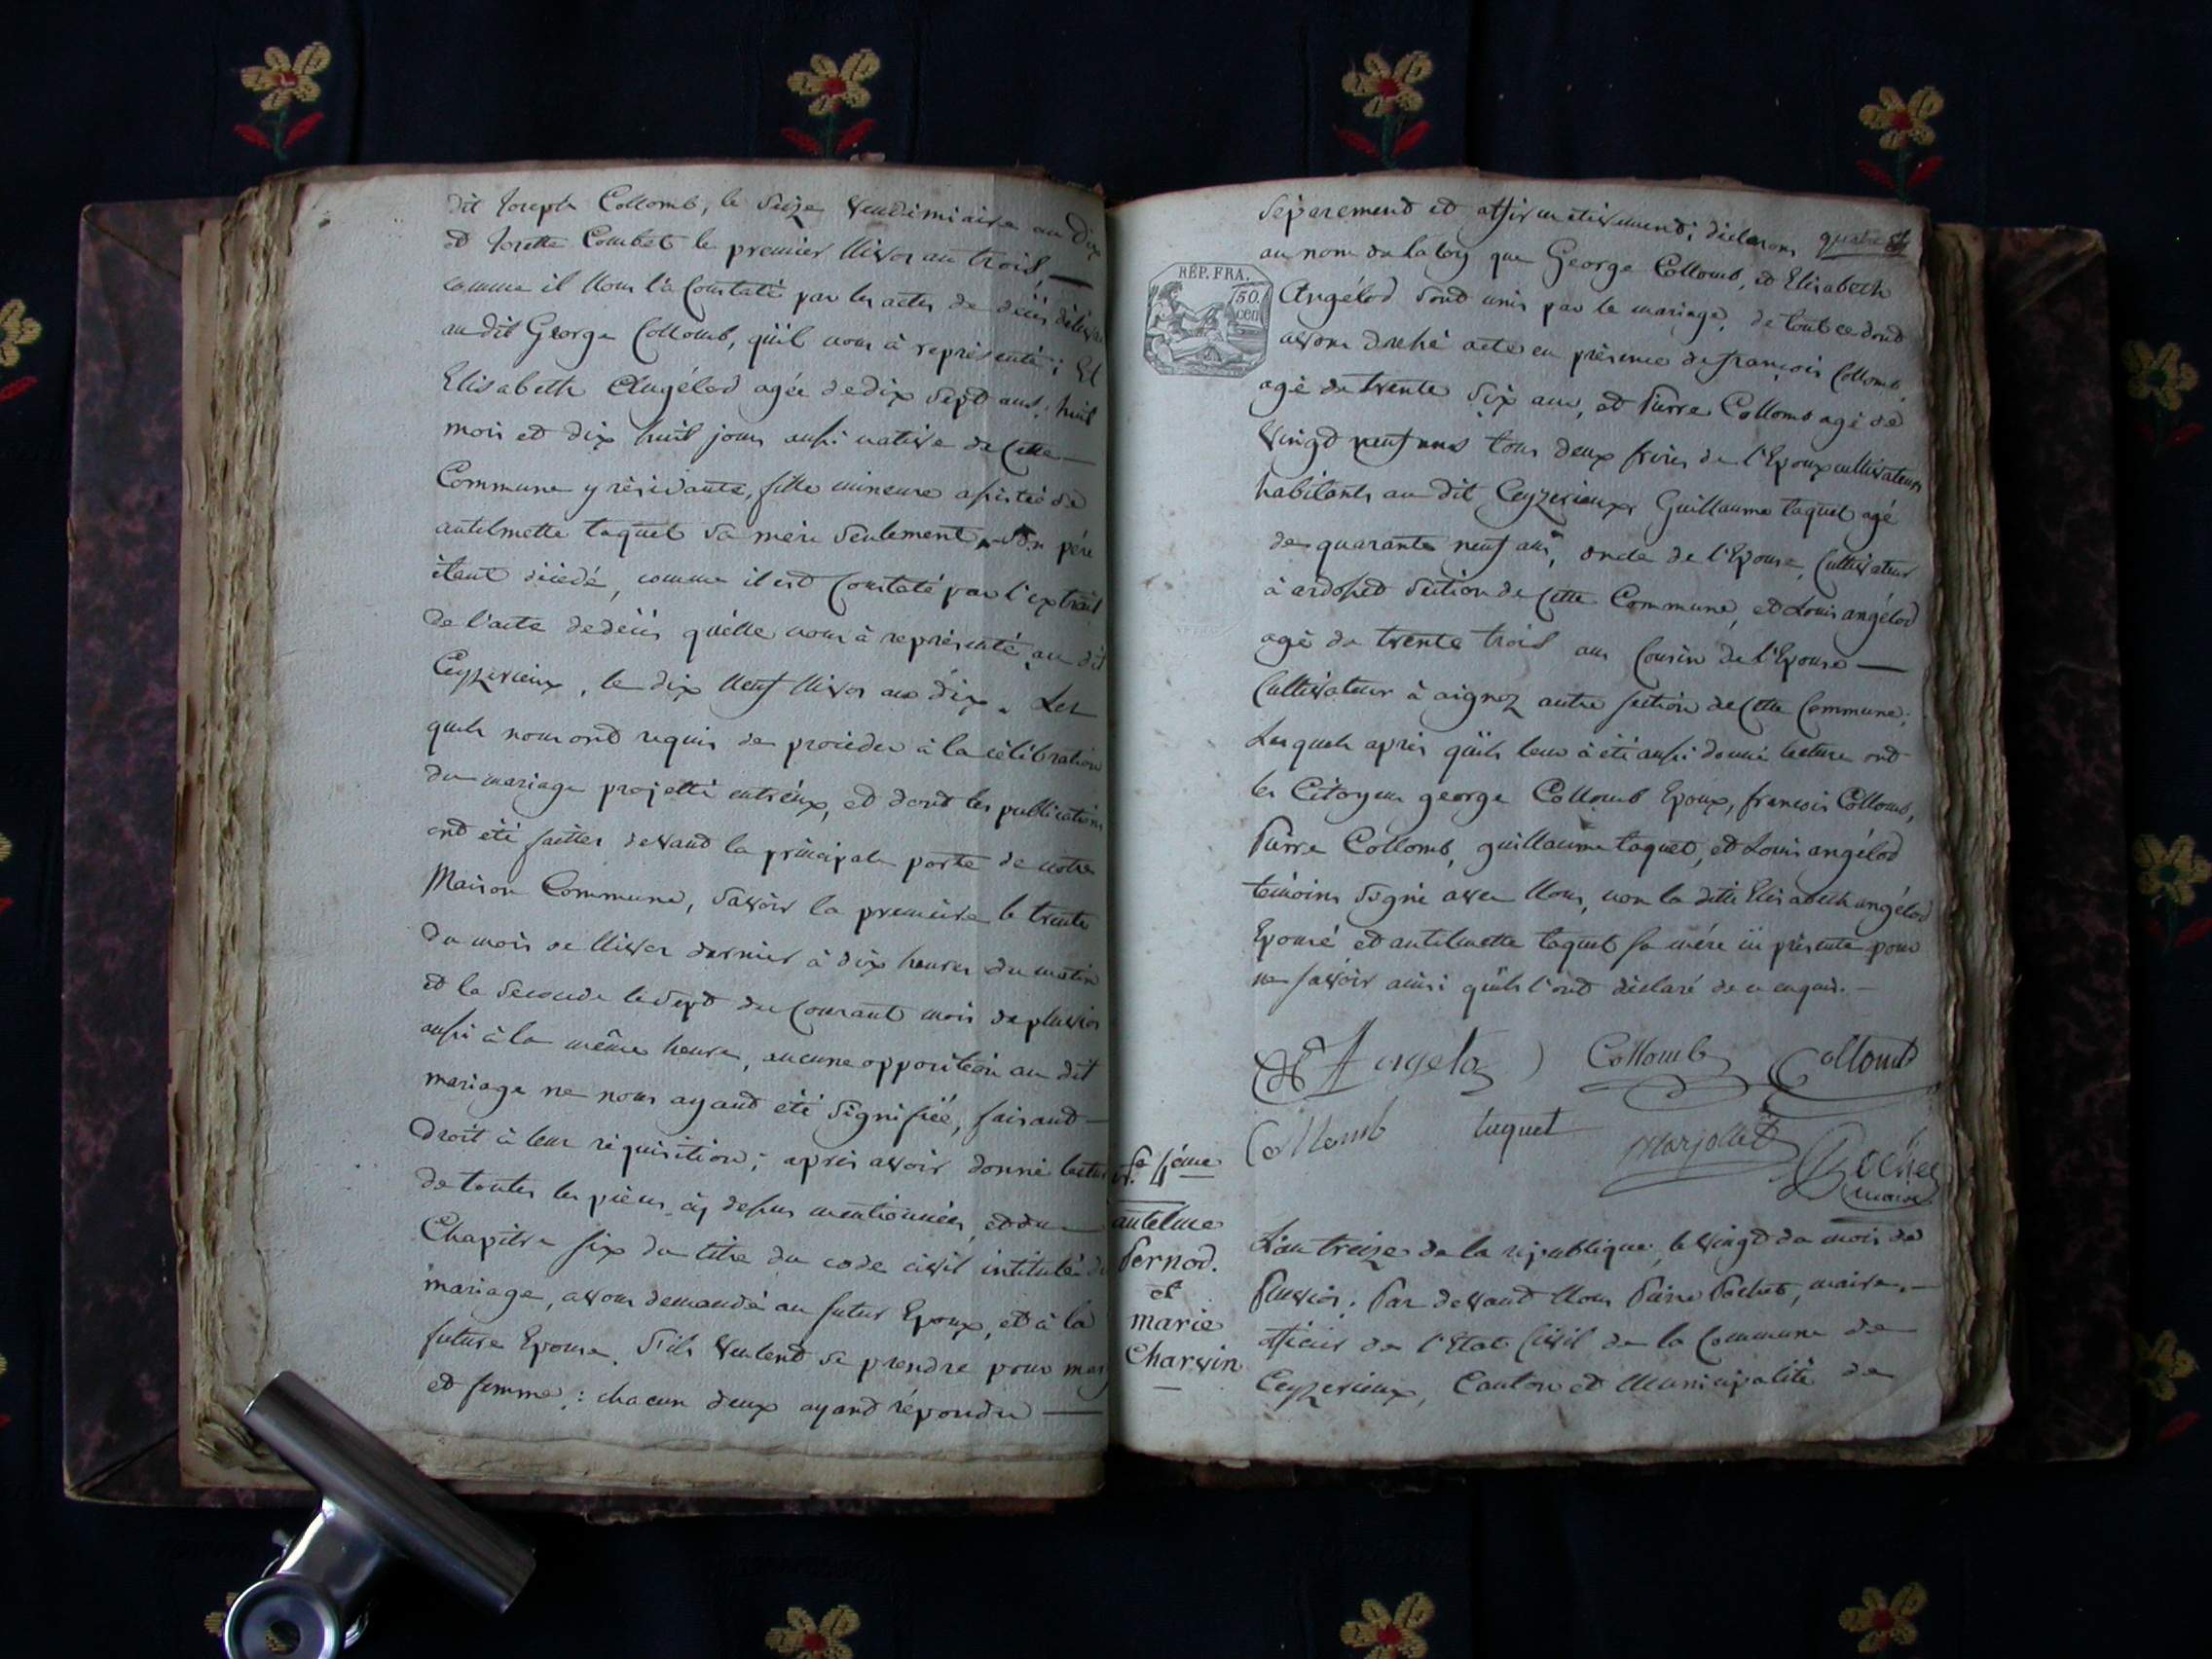 dit Joseph Collomb, le Seize Vendémiaire an Dix
et Josette Combet le premier Nivos an trois, —
comme il Nous l'à Constaté par les actes de décès délivrés
au dit George Collomb, qu'il nous à représenté; Et
Elisabeth Angélod agée de dix Sept ans, huit
mois et dix huit jours aussi native de Cette —
Commune y résidante, fille mineure assistée de
antelmette taquet Sa mère Seulement, Son père
étant décédé, comme il est Constaté par l'extrait
de l'acte de décès qu'elle nous à représenté au dit
Ceyzerieux, le dix Neuf Nivos an dix. Les
quels nous ont requis de procéder à la célébration
du mariage projetté entr'eux, et dont les publications
ont été faittes devant la principale porte de notre
Maison Commune, Savoir la première le trente
du mois de Nivos dernier à dix heures du matin
et la Seconde le Sept du Courant mois de pluvios
aussi à la même heure, aucune opposition au dit
mariage ne nous ayant été Signifiée, faisant —
Droit à leur réquisition; après avoir donné lectur
de toutes les pièces cy dessus mentionnées, et du
Chapitre six du titre du code civil intitulé du
mariage, avons demandé au futur Epoux, et à la
future Epouse, S'ils Veulent se prendre pour mary
et femme: chacun deux ayant répondu —
Séparement et affirmativement; déclarons quatre
au nom de la loy que George Collomb, et Elisabeth
RÉP. FRA.
50.
cen
Angélod Sont unis par le mariage, de tout ce dont
avons dressé acte en présence de françois Collomb
agé de trente Six ans, et Pierre Collomb agé de
Vingt neuf ans tous deux frères de l'Epoux cultivateurs
habitants au dit Ceyzerieux, Guillaume taquet agé
de quarante neuf ans, oncle de l'Epouse, Cultivateur
à ardosset Section de Cette Commune, et Louis angélod
agé de trente trois ans Cousin de l'Epouse —
Cultivateur à aignoz autre section de Cette Commune;
Les quels après qu'ils leur à été aussi donné lecture ont
les Citoyens george Collomb Epoux, francois Collomb,
Pierre Collomb, guillaume taquet, et Louis angélod
témoins Signé avec Nous, non la ditte Elisabeth angélod
Epouse et antelmette taquet sa mère ici présente pour
ne savoir ainsi qu'ils l'ont déclaré de ce enquis. —
Angeloz Collomb Collomb
Collomb taquet Marjollet Pochet
maire
4ème
antelme
Pernod.
et
marie
Charvin
L'an treize de la république, le vingt du mois de
Pluvios. Par devant Nous Pierre Pochet, maire, —
officier de l'Etat Civil de la Commune de
Ceyzerieux, Canton et Municipalité de